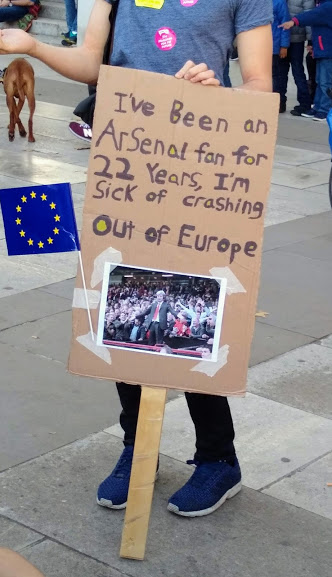 I've Been an
Arsenal fan for
22 Years, I'm
Sick of crashing
Out of Europe